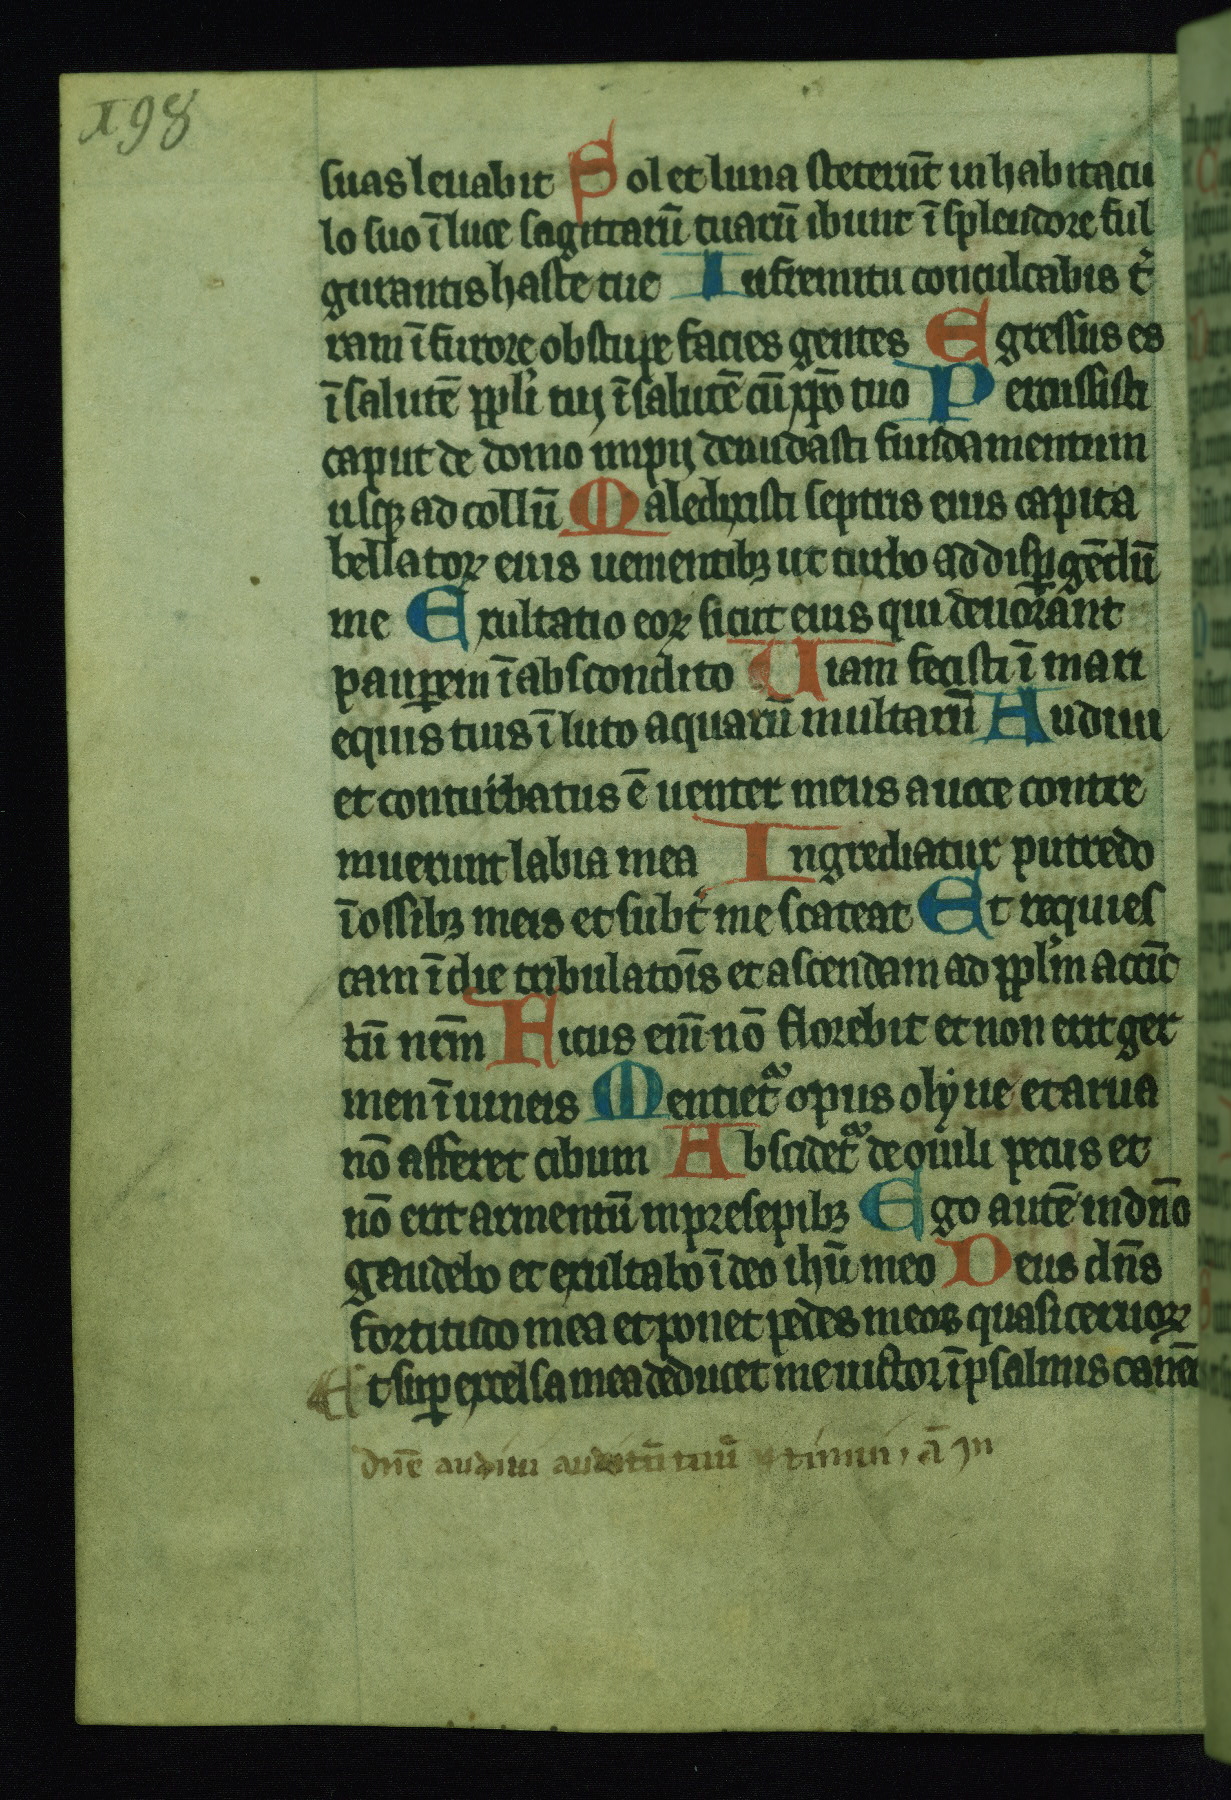 198
suas leuabit Sol et luna steterūt in habitacu
lo suo ī luce sagittarū tuarū ibunt ī splendore ful
gurantis haste tue In fremitu conculcabis t̄
ram ī furore obstupe facies gentes Egressus es
ī salutē ppli tuj ī salutē cū xp̄o tuo Percussisti
caput de domo impij denudasti fundamentum
usqꝫ ad collū Maledixisti septris eius capita
bellatoꝝ eius uenientibꝫ ut turbo ad disꝑgēdū
me Exultatio eoꝝ sicut eius qui deuorant
pauꝑem ī abscondito Uiam fecisti ī mari
equis tuis ī luto aquarū multarū Audiui
et conturbatus ē uenter meus a uoce contre
muerunt labia mea Ingrediatur putredo
ī ossibꝫ meis et subt̄ me scateat Et requies
cam ī die tribulatōīs et ascendam ad pplm accīc
tū nrm̄ Ficus enī nō florebit et non erit ger
men ī uineis Mentiet᷑ opus olyue et arua
nō afferet cibum Abscidet᷑ de ouili pecus et
nō erit armentū in presepibꝫ Ego autē in dn̄o
gaudebo et exultabo ī deo ihū meo Deus dn̄s
fortitudo mea et ponet pedes meos quasi ceruoꝝ
Et suꝑ excelsa mea deducet me uictor ī psalmis canē
dn̄e audiui auditū tuū et timui, ā In